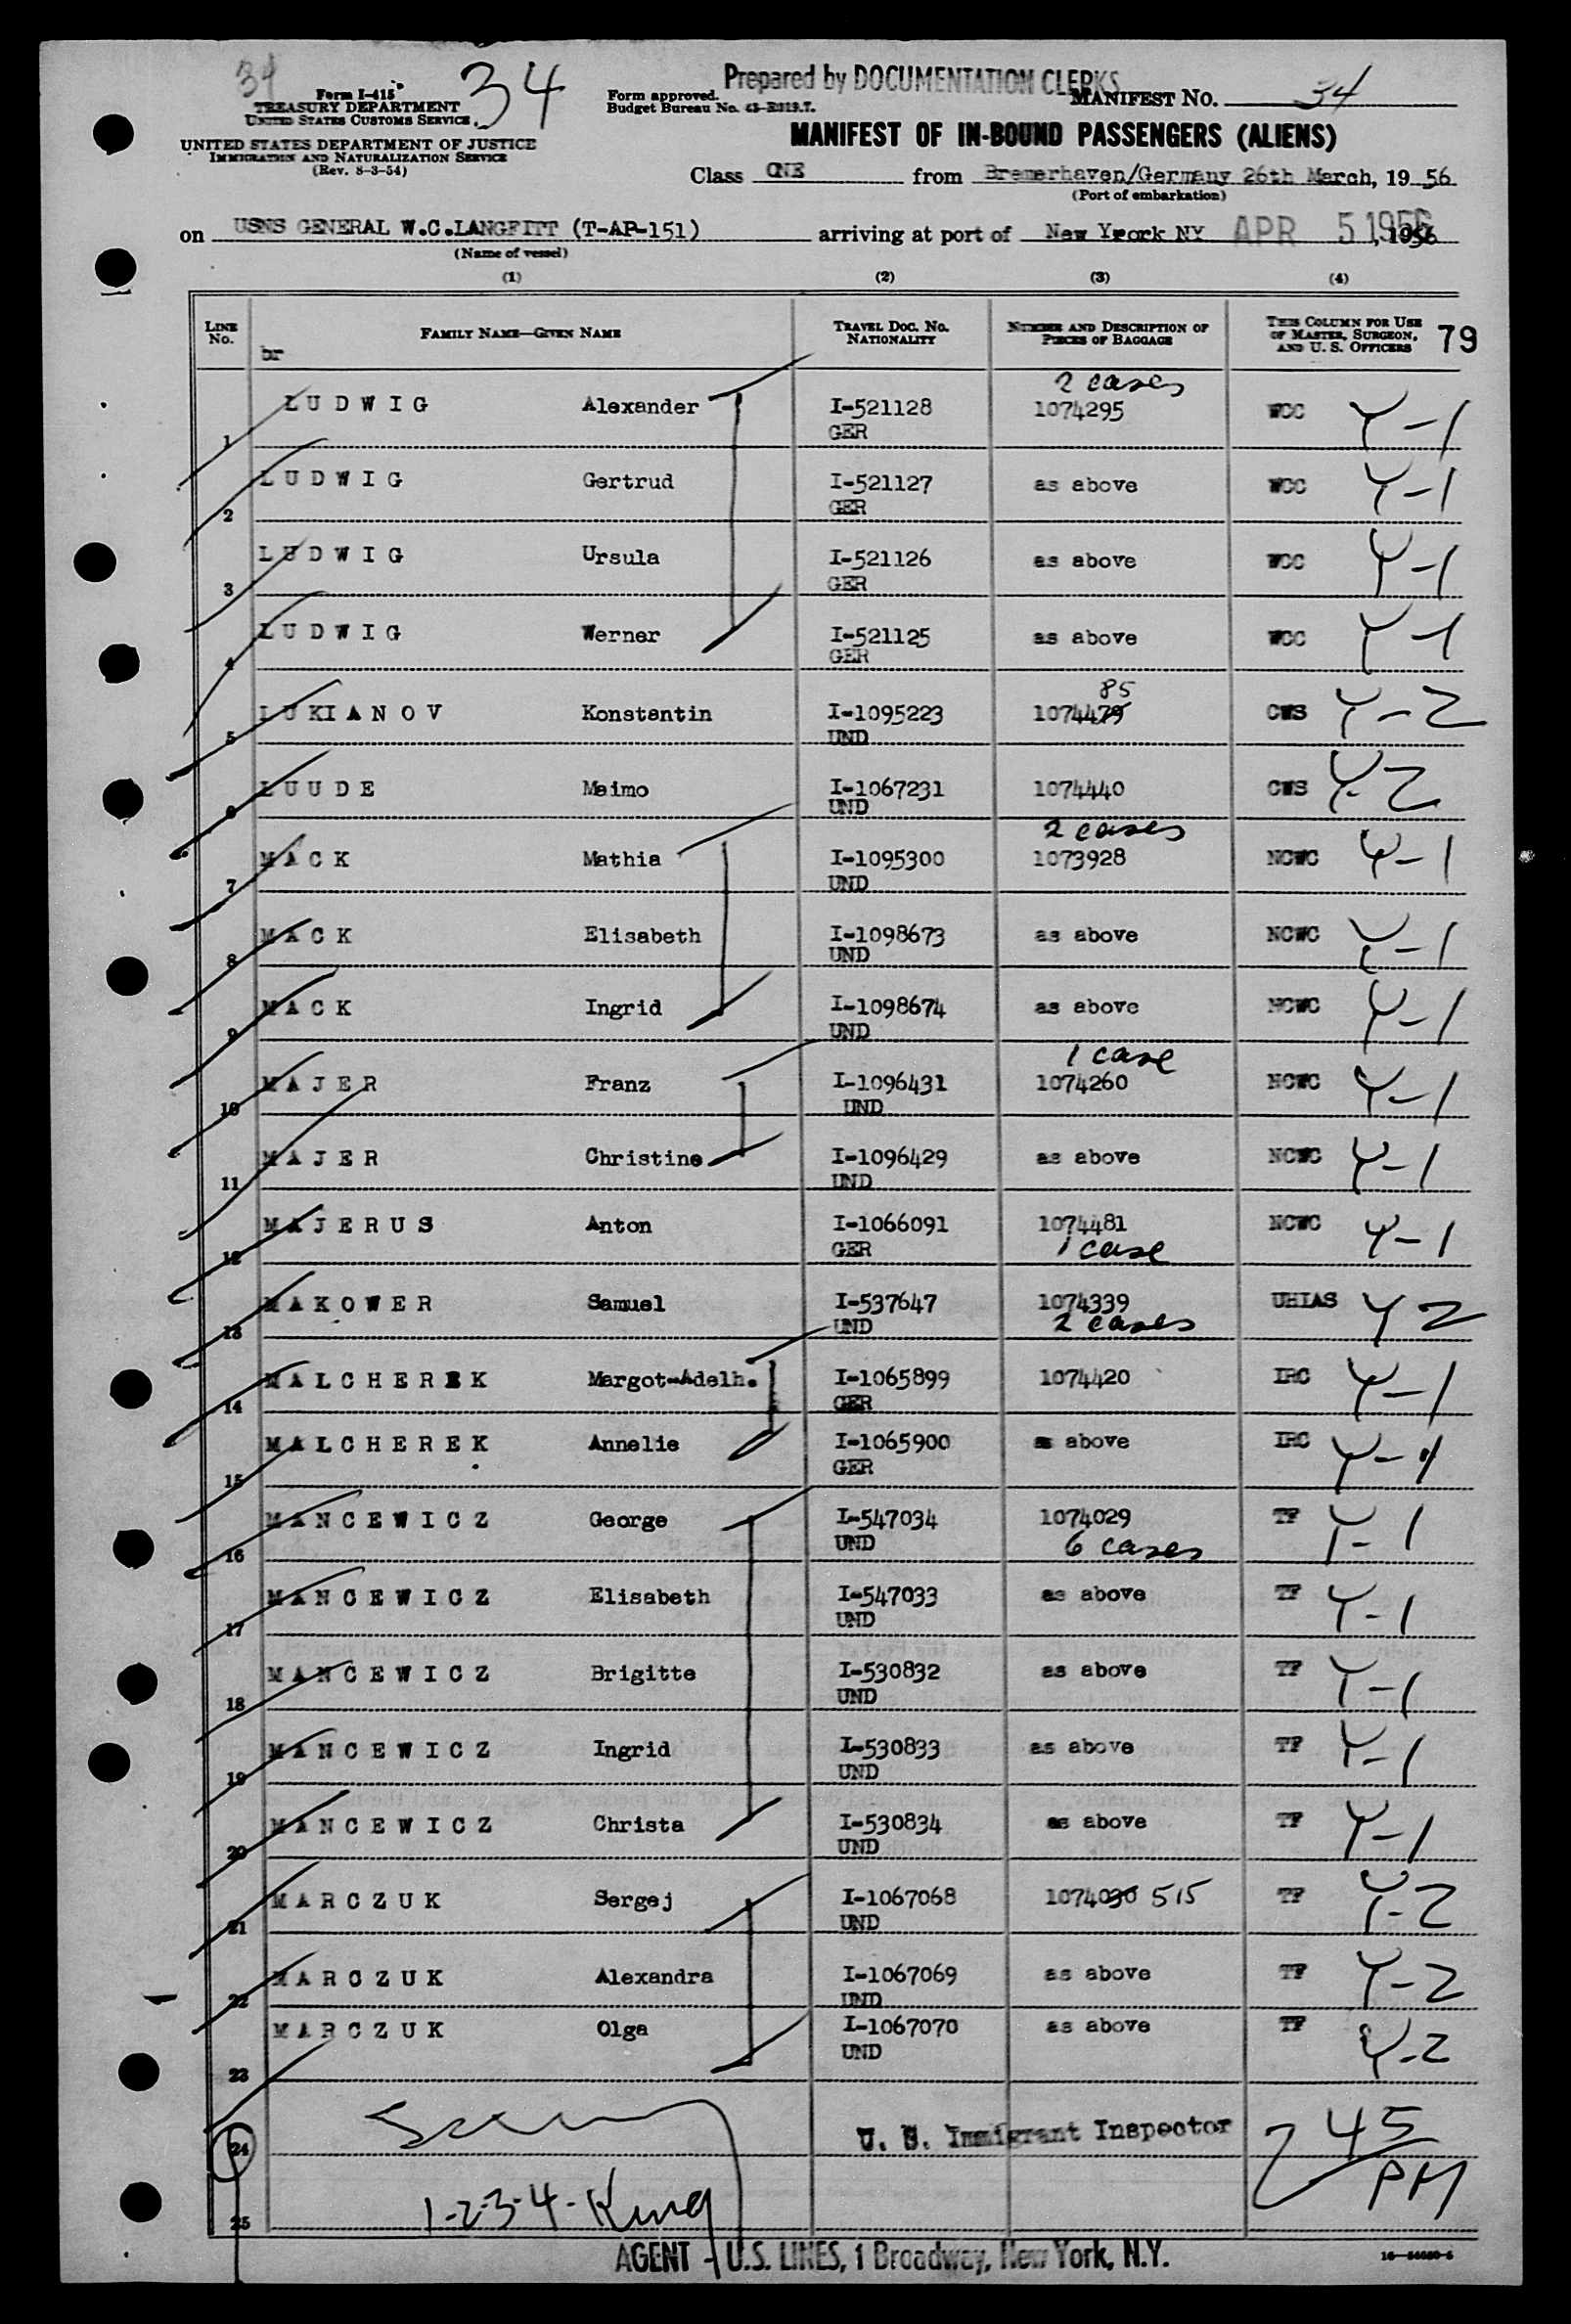 34
Form I-415
TREASURY DEPARTMENT
UNITED STATES CUSTOMS SERVICE
34
UNITED STATES DEPARTMENT OF JUSTICE
IMMIGRATION AND NATURALIZATION SERVICE
(Rev. 8-3-54)
Prepared by DOCUMENTATION CLERKS
Form approved.
Budget Bureau No.
MANIFEST NO. 34
MANIFEST OF IN-BOUND PASSENGERS (ALIENS)
Class ONE from Bremerhaven/Germany 26th March, 19 56
(Port of embarkation)
on USNS GENERAL W.C.LANGFITT (T-AP-151) arriving at port of New Yrork NY APR 5 1956, 1956
(Name of vessel)
(1) (2) (3) (4)
LINE No. FAMILY NAME—GIVEN NAME TRAVEL DOC. NO. NATIONALITY NUMBER AND DESCRIPTION OF PIECES OF BAGGAGE THIS COLUMN FOR USE OF MASTER, SURGEON, AND U. S. OFFICERS 79
br
2 cases
1 LUDWIG Alexander I-521128 GER 1074295 WCC Y-1
2 LUDWIG Gertrud I-521127 GER as above WCC Y-1
3 LUDWIG Ursula I-521126 GER as above WCC Y-1
4 LUDWIG Werner I-521125 GER as above WCC Y-1
85
5 LUKIANOV Konstantin I-1095223 UND 1074479 CWS Y-2
6 LUUDE Maimo I-1067231 UND 1074440 CWS Y-2
2 cases
7 MACK Mathia I-1095300 UND 1073928 NCWC Y-1
8 MACK Elisabeth I-1098673 UND as above NCWC Y-1
9 MACK Ingrid I-1098674 UND as above NCWC Y-1
1 case
10 MAJER Franz I-1096431 UND 1074260 NCWC Y-1
11 MAJER Christine I-1096429 UND as above NCWC Y-1
12 MAJERUS Anton I-1066091 GER 1074481 1 case NCWC Y-1
13 MAKOWER Samuel I-537647 UND 1074339 2 cases UHIAS Y 2
14 MALCHEREK Margot-Adelh. I-1065899 GER 1074420 IRC Y-1
15 MALCHEREK Annelie I-1065900 GER as above IRC Y-1
16 MANCEWICZ George I-547034 UND 1074029 6 cases TF Y-1
17 MANCEWICZ Elisabeth I-547033 UND as above TF Y-1
18 MANCEWICZ Brigitte I-530832 UND as above TF Y-1
19 MANCEWICZ Ingrid I-530833 UND as above TF Y-1
20 MANCEWICZ Christa I-530834 UND as above TF Y-1
21 MARCZUK Sergej I-1067068 UND 1074030 515 TF Y-2
22 MARCZUK Alexandra I-1067069 UND as above TF Y-2
23 MARCZUK Olga I-1067070 UND as above TF Y-2
24 U. S. Immigrant Inspector 2 45 PM
25 1-2-3-4-King
AGENT - U.S. LINES, 1 Broadway, New York, N.Y.